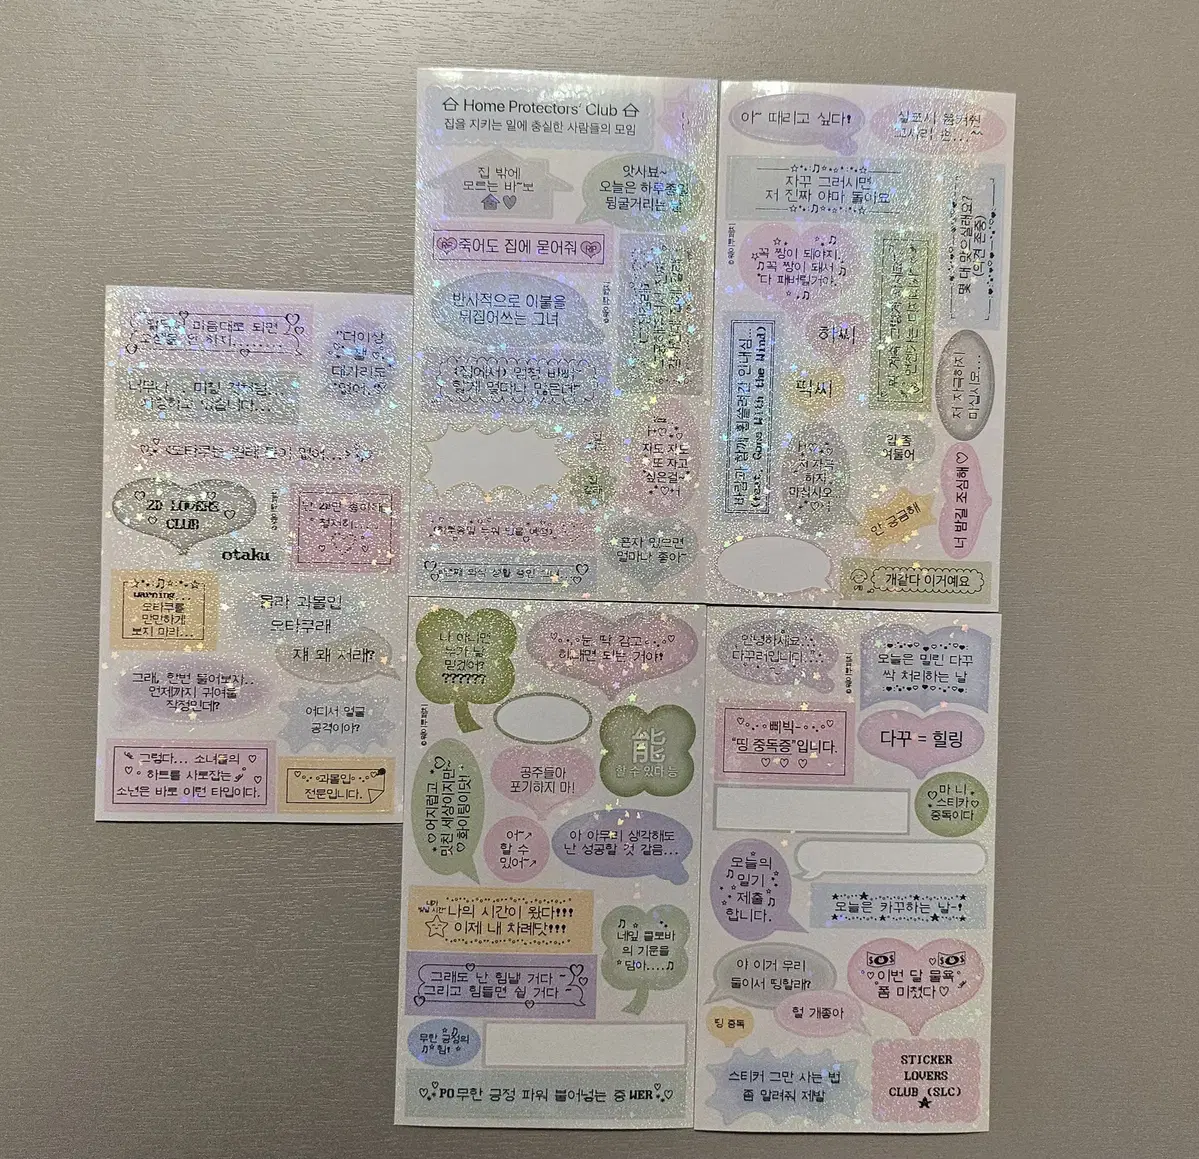 Home Protectors' Club
집을 지키는 일에 충실한 사람들의 모임
집 밖에
모르는 바~보
앗사뵤~
오늘은 하루종일
뒹굴거리는 날
죽어도 집에 묻어줘
반사적으로 이불을
뒤집어쓰는 그녀
자도 자도
또 자고
싶은걸~
혼자 있으면
얼마나 좋아~
아~ 때리고 싶다!
자꾸 그러시면
저 진짜 야마 돌아요
몇 대 맞으실래요?
(의견 존중)
꼭 짱이 되야지.
꼭 짱이 돼서
다 패버릴거야.
허씨
떡씨
바람과 함께 휩쓸려간 인내심...
(feat. Gone With the Wind)
저 자극하지
마십시오...
저 자극
하지
마십시오
입 좀
여물어
안 궁금해
너 밤길 조심해♡
개같다 이거예요
"더이상
2D LOVERS
CLUB
otaku
warning...
오타쿠를
만만하게
보지 마라...
몰라 과몰입
오타쿠래
쟤 왜 저래?
그래, 한번 물어보자..
언제까지 귀여울
작정인데?
어디서 얼굴
공격이야?
그렇다... 소녀들의
하트를 사로잡는
소년은 바로 이런 타입이다.
과몰입
전문입니다.
나 아니면
누가 날
믿겠어?
??????
눈 딱 감고
해내면 되는 거야!
能
할 수 있다 능
공주들아
포기하지 마!
♡어지럽고
밋친 세상이지만~
♡화이팅이닷!
어~↗
할 수
있어~↗
아 아무리 생각해도
난 성공할 것 같음...
나의 시간이 왔다!!!
이제 내 차례닷!!!
네잎 클로바
의 기운을
담아....♫
그래도 난 힘낼 거다~
그리고 힘들면 쉴 거다~
무한 긍정의
힘!
PO무한 긍정 파워 불어넣는 중WER
안녕하세요.
다꾸러입니다...
오늘은 밀린 다꾸
싹 처리하는 날
삐빅-
"띵 중독증"입니다.
♡ ♡ ♡
다꾸 = 힐링
마 니
스티카
중독이다
오늘의
일기
제출
합니다.
오늘은 카꾸하는 날~!
야 이거 우리
둘이서 띵할래?
헐 개좋아
띵 중독
이번 달 물욕
폼 미쳤다♡
스티커 그만 사는 법
좀 알려줘 제발
STICKER
LOVERS
CLUB (SLC)